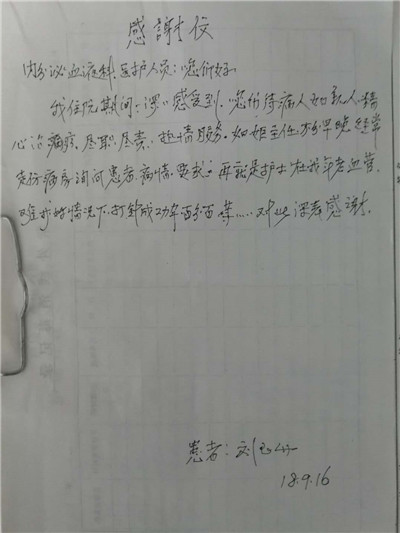 感謝信
内分泌血液科医护人员:您们好
我住院期间,深深感受到,您们待病人如亲人.精
心治病,尽职尽责,热情服务.如姬主任 早晚经常
病房询问患者,病情,要求。再就是护士 在我年老血管
难 情况下,打针成功率百分百等……对此深表感谢.
患者:刘玉
18.9.16